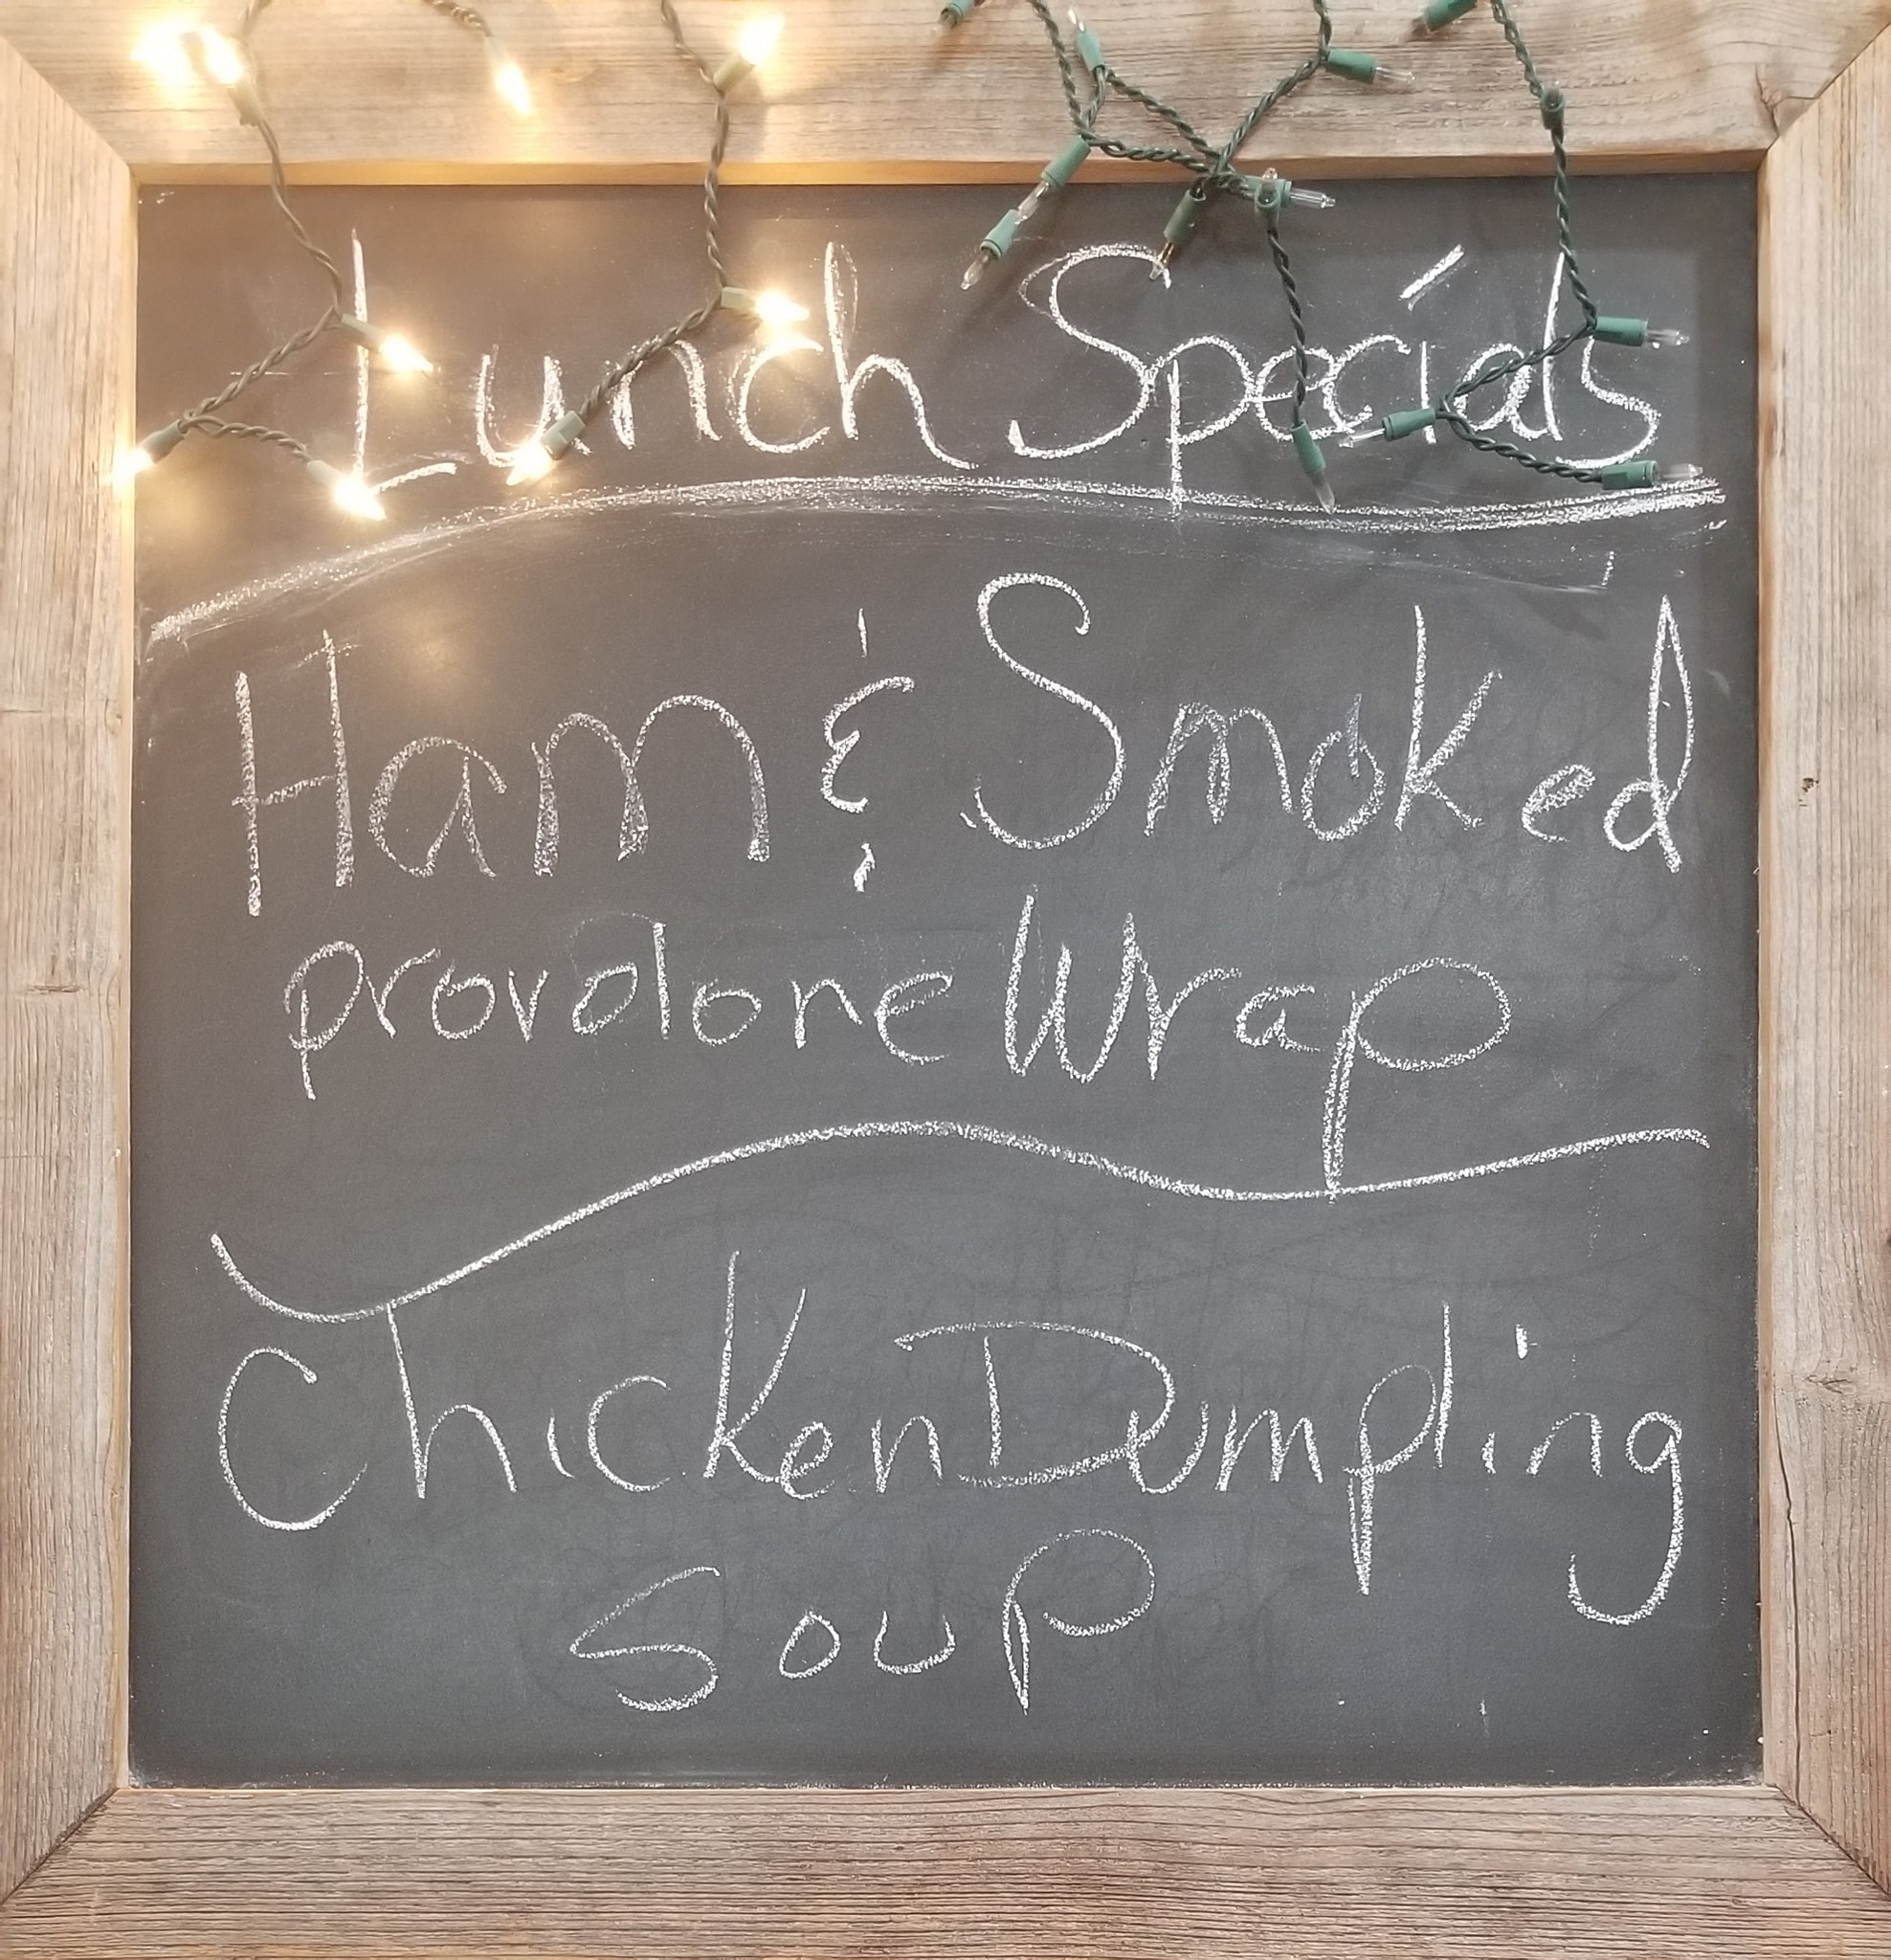 Lunch Specials
Ham & Smoked
provolone Wrap
Chicken Dumpling
Soup